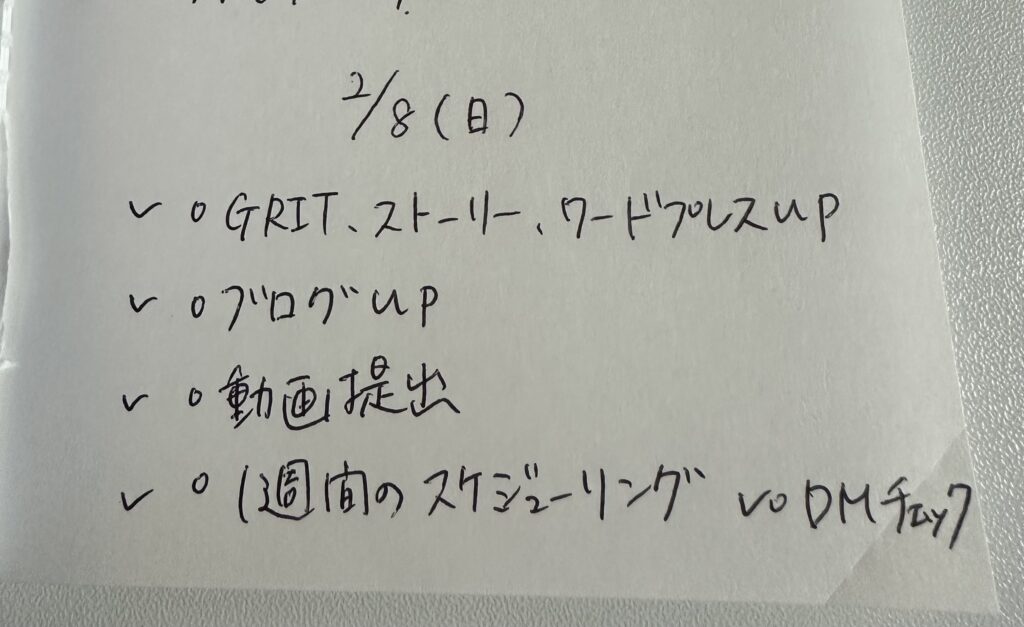 2/8(日)
✓ o GRIT、ストーリー、ワードプレスUP
✓ o ブログUP
✓ o 動画提出
✓ o 1週間のスケジューリング ✓ o DMチェック